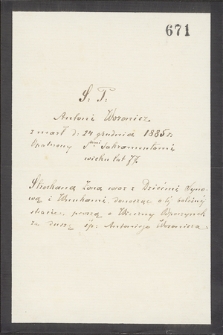 671
S. T.
Antoni Woronicz
zmarł d. 24 grudnia 1885 r.
Opatrzony Śmi Sakramentami
wieku lat 77
Stroskana Żona wraz z Dziećmi Synową
i Wnukami donosząc o tej
proszą o Wieczny Odpoczynek
za duszę śp. Antoniego Woronicza.